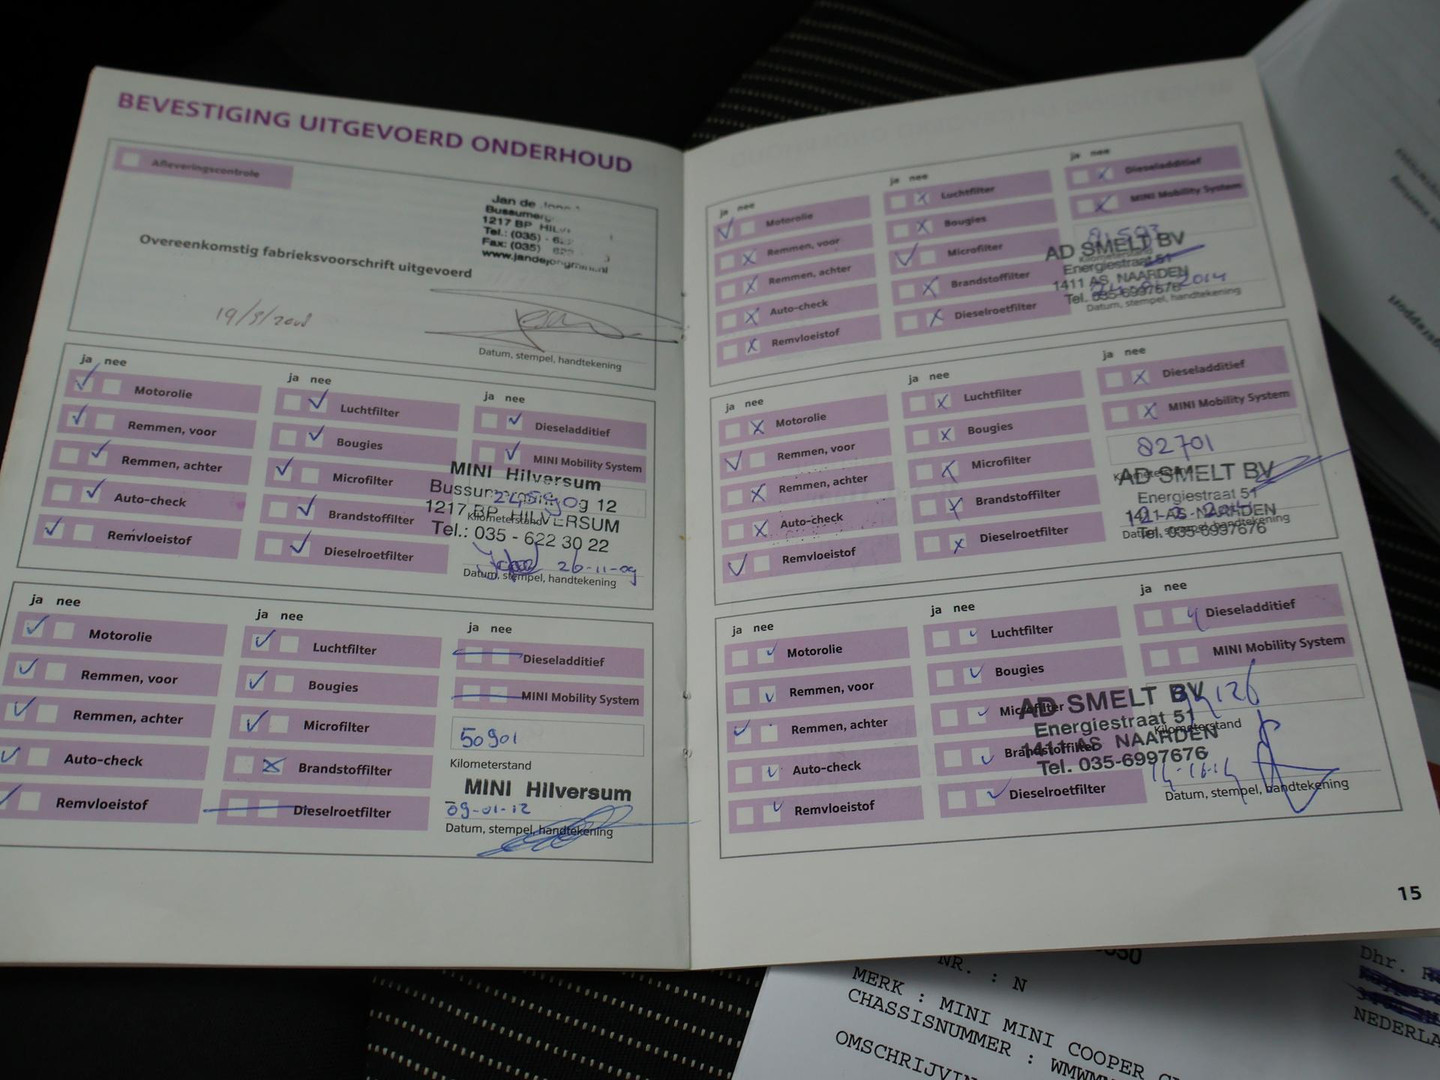 BEVESTIGING UITGEVOERD ONDERHOUD
Afleveringscontrole
Jan de
1217 BP
Tel.: (035) -
Fax: (035)
Overeenkomstig fabrieksvoorschrift uitgevoerd
19/5/2008
Datum, stempel, handtekening
ja nee
Motorolie
Remmen, voor
Remmen, achter
Auto-check
Remvloeistof
ja nee
Luchtfilter
Bougies
Microfilter
Brandstoffilter
Dieselroetfilter
ja nee
Dieseladditief
MINI Mobility System
MINI Hilversum
1217 BP HILVERSUM
Kilometerstand
Tel.: 035 - 622 30 22
26-11-09
Datum, stempel, handtekening
ja nee
Motorolie
Remmen, voor
Remmen, achter
Auto-check
Remvloeistof
ja nee
Luchtfilter
Bougies
Microfilter
Brandstoffilter
Dieselroetfilter
ja nee
Dieseladditief
MINI Mobility System
50901
Kilometerstand
MINI Hilversum
09-01-12
Datum, stempel, handtekening
ja nee
Motorolie
Remmen, voor
Remmen, achter
Auto-check
Remvloeistof
ja nee
Luchtfilter
Bougies
Microfilter
Brandstoffilter
Dieselroetfilter
ja nee
Dieseladditief
MINI Mobility System
AD SMELT BV
Energiestraat 51
1411 AS NAARDEN
Tel. 035-6997676
Datum, stempel, handtekening
ja nee
Motorolie
Remmen, voor
Remmen, achter
Auto-check
Remvloeistof
ja nee
Luchtfilter
Bougies
Microfilter
Brandstoffilter
Dieselroetfilter
ja nee
Dieseladditief
MINI Mobility System
82701
AD SMELT BV
Energiestraat 51
1411 AS NAARDEN
Tel. 035-6997676
ja nee
Motorolie
Remmen, voor
Remmen, achter
Auto-check
Remvloeistof
ja nee
Luchtfilter
Bougies
Microfilter
Brandstoffilter
Dieselroetfilter
ja nee
Dieseladditief
MINI Mobility System
Kilometerstand
AD SMELT BV
Energiestraat 51
1411 AS NAARDEN
Tel. 035-6997676
Datum, stempel, handtekening
15
NR. : N
MERK : MINI MINI COOPER
CHASSISNUMMER :
Dhr.